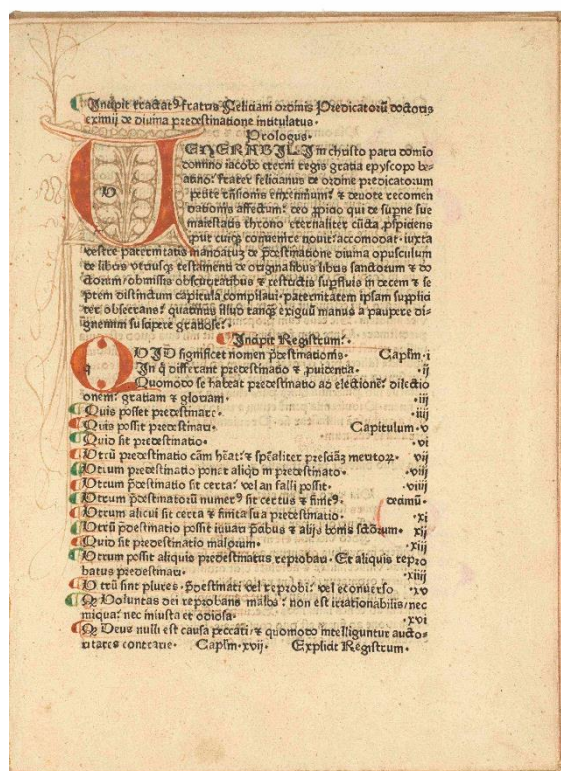 Incipit tractatꝰ fratris Feliciani ordinis Predicatorū doctoris
eximij de diuina predestinatione intitulatus.
Prologus.
VENERABILI in christo patri domīo
domino iacobo eterni regis gratia epyscopo be-
atino: frater felicianus de ordine predicatorum
ꝛ deuote recomen
dationis affectum: deo ꝓpicio qui de supne sue
maiestatis throno eternaliter cūcta ꝓspiciens
put cuiqꝫ conuenire nouit: accomodat. iuxta
vestre paternitatis mandatuꝫ de p̄destinatione diuina opusculum
de libris vtriusqꝫ testamenti de originalibus libris sanctorum ꝛ do
ctorum/ obmissis obscuritatibus ꝛ restrictis supfluis in decem ꝛ se
ptem distinctum capitula compilaui. paternitatem ipsam supplici
ter obsecrans: quatinus illud tanqꝫ exiguū manus a paupere di-
gnemini suscipere gratiose.
Incipit Registrum.
QVID significet nomen p̄destinationis. Caplm .i
In q̄ differant predestinatio ꝛ ꝓuidentia. .ij
Quomodo se habeat predestinatio ad electionē: dilectio
onem: gratiam ꝛ gloriam. .iij
Quis posset predestinare. .iiij
Quis possit predestinari. Capitulum .v
Quid sit predestinatio. .vi
Vtrū predestinatio cām hēat: ꝛ sp̄ealiter presciāꝫ meritoꝝ. vij
Vtrum predestinatio ponet aliqd in predestinato. .viij
Vtrum p̄destinatio sit certa: vel an falli possit. .viiij
Vtrum p̄destinatorū numerꝰ sit certus ꝛ finitꝰ. decimū.
Vtrum alicui sit certa ꝛ finita sua predestinatio. .xi
Vtrū p̄destinatio possit iuuari p̄cibus ꝛ alijs bonis sctōrum. xij
Quid sit predestinatio malorum. .xiij
Vtrum possit aliquis predestinatus reprobari. Et aliquis repro
batus predestinari. .xiiij
Vtrū sint plures. p̄destinati vel reprobi: vel econuerso .xv
Qꝫ Voluntas dei reprobans malos: non est irrationabilis/ nec
iniqua: nec iniusta et odiosa. .xvi
Qꝫ Deus nulli est causa peccati/ ꝛ quomodo intelliguntur aucto-
ritates contrarie. Caplm .xvij. Explicit Registrum.